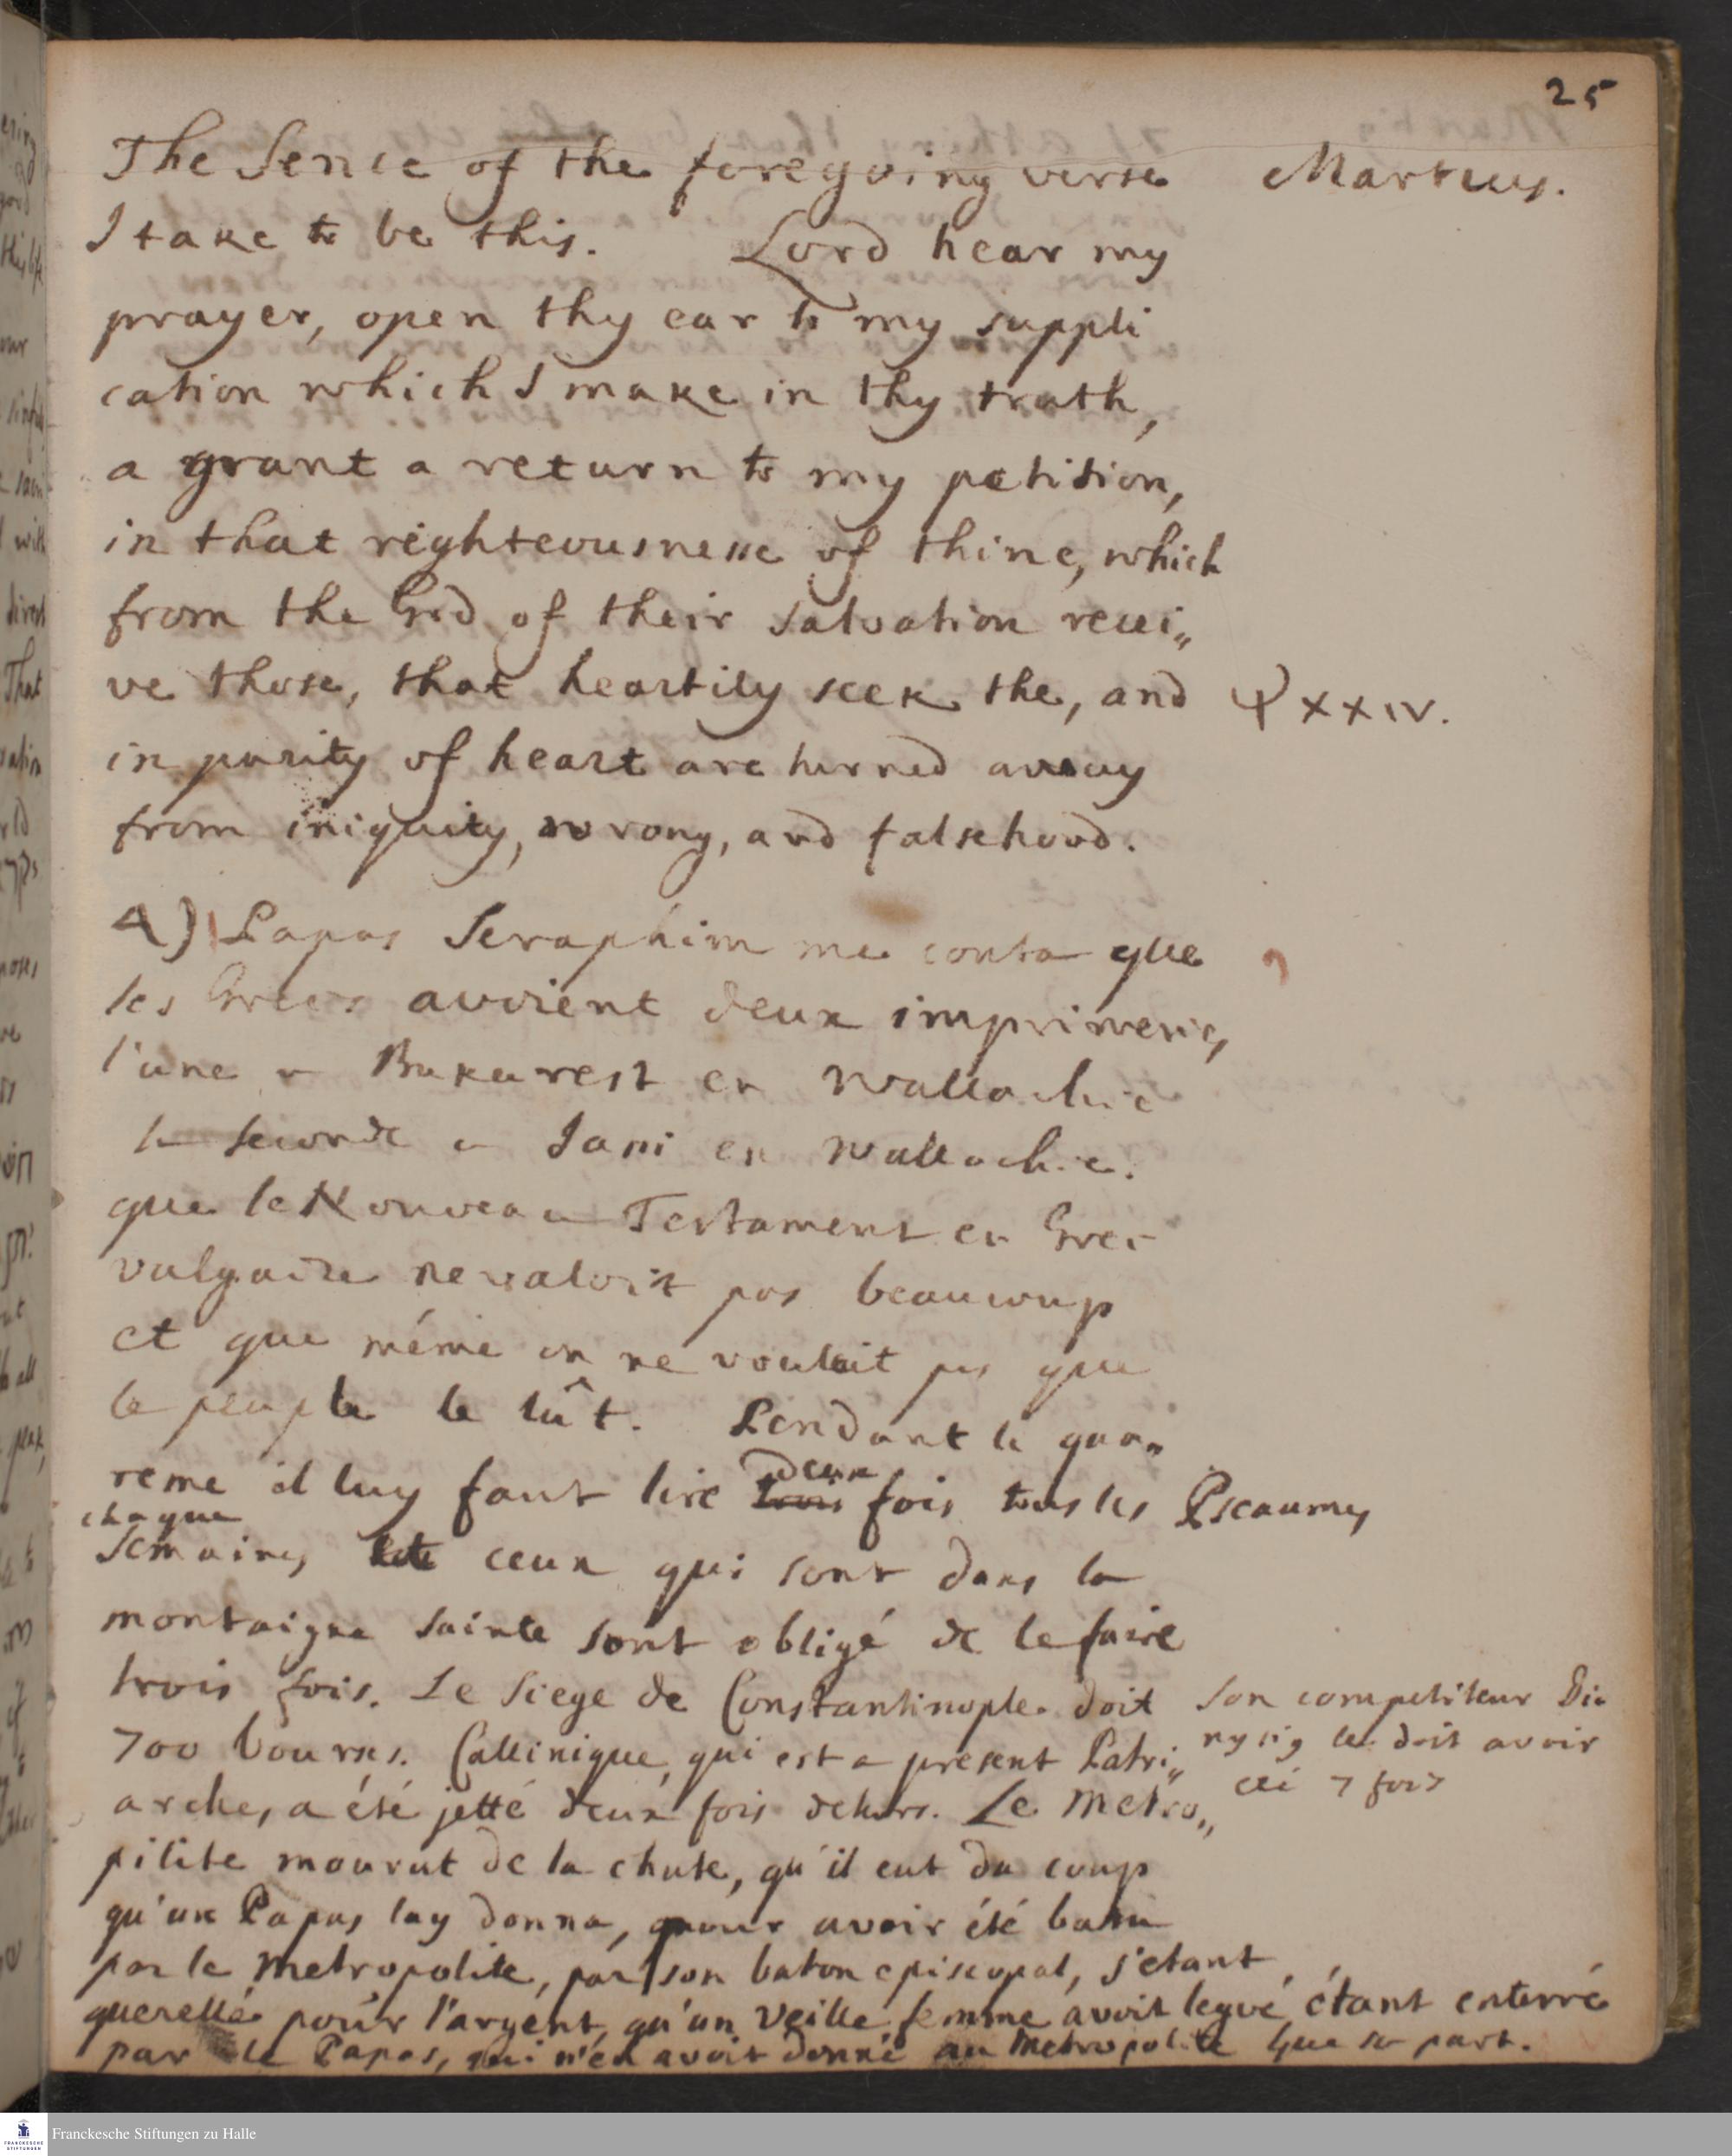 25
The Sence of the foregoing verse
Martius.
I take to be this. Lord hear my
prayer, open thy ear to my suppli
cation which I make in thy truth,
a grant a return to my petition,
in that righteousnesse of thine, which
from the God of their salvation recei„
ve those, that heartily seek the, and
Ψ XXIV.
in purity of heart are turned away
from iniquity, wrong, and falsehood.
4) Papas Seraphim me conta que
les Grecs avoient deux imprimerie,
l'une a Bukurest en Wallachie
la seconde a Jassi en Wallachie.
que le Nouveau Testament en Grec
vulgaire ne valoit pas beaucoup
et que même on ne vouloit pas que
le peuple le lût. Pendant le qua„
reme il luy faut lire trois deux fois tous les Pseaumes
chaque
semaines ceux qui sont dans la
montaigne sainte sont obligé de le faire
trois fois. Le Siege de Constantinople doit
700 bourses. Callinique, qui est a present Patri„
arche, a été jetté deux fois dehors. Le Metro„
son competiteur Dio
nysis le doit avoir
été 7 fois
pilite mourut de la chute, qu'il eut du coup
qu'un Papas luy donna, pour avoir été battu
par le Metropolite, par son baton episcopal, s'etant
querellé pour l'argent, qu'un veille femme avoit legué, étant enterré
par le Papas, qui n'en avoit donné au Metropolite que sa part.
Franckesche Stiftungen zu Halle
FRANCKESCHE
STIFTUNGEN